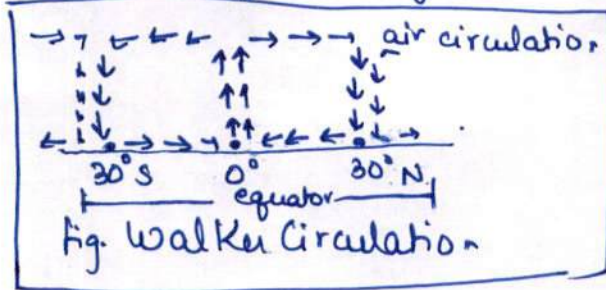 air circulation
30°S 0° 30°N
equator
Fig. Walker Circulation